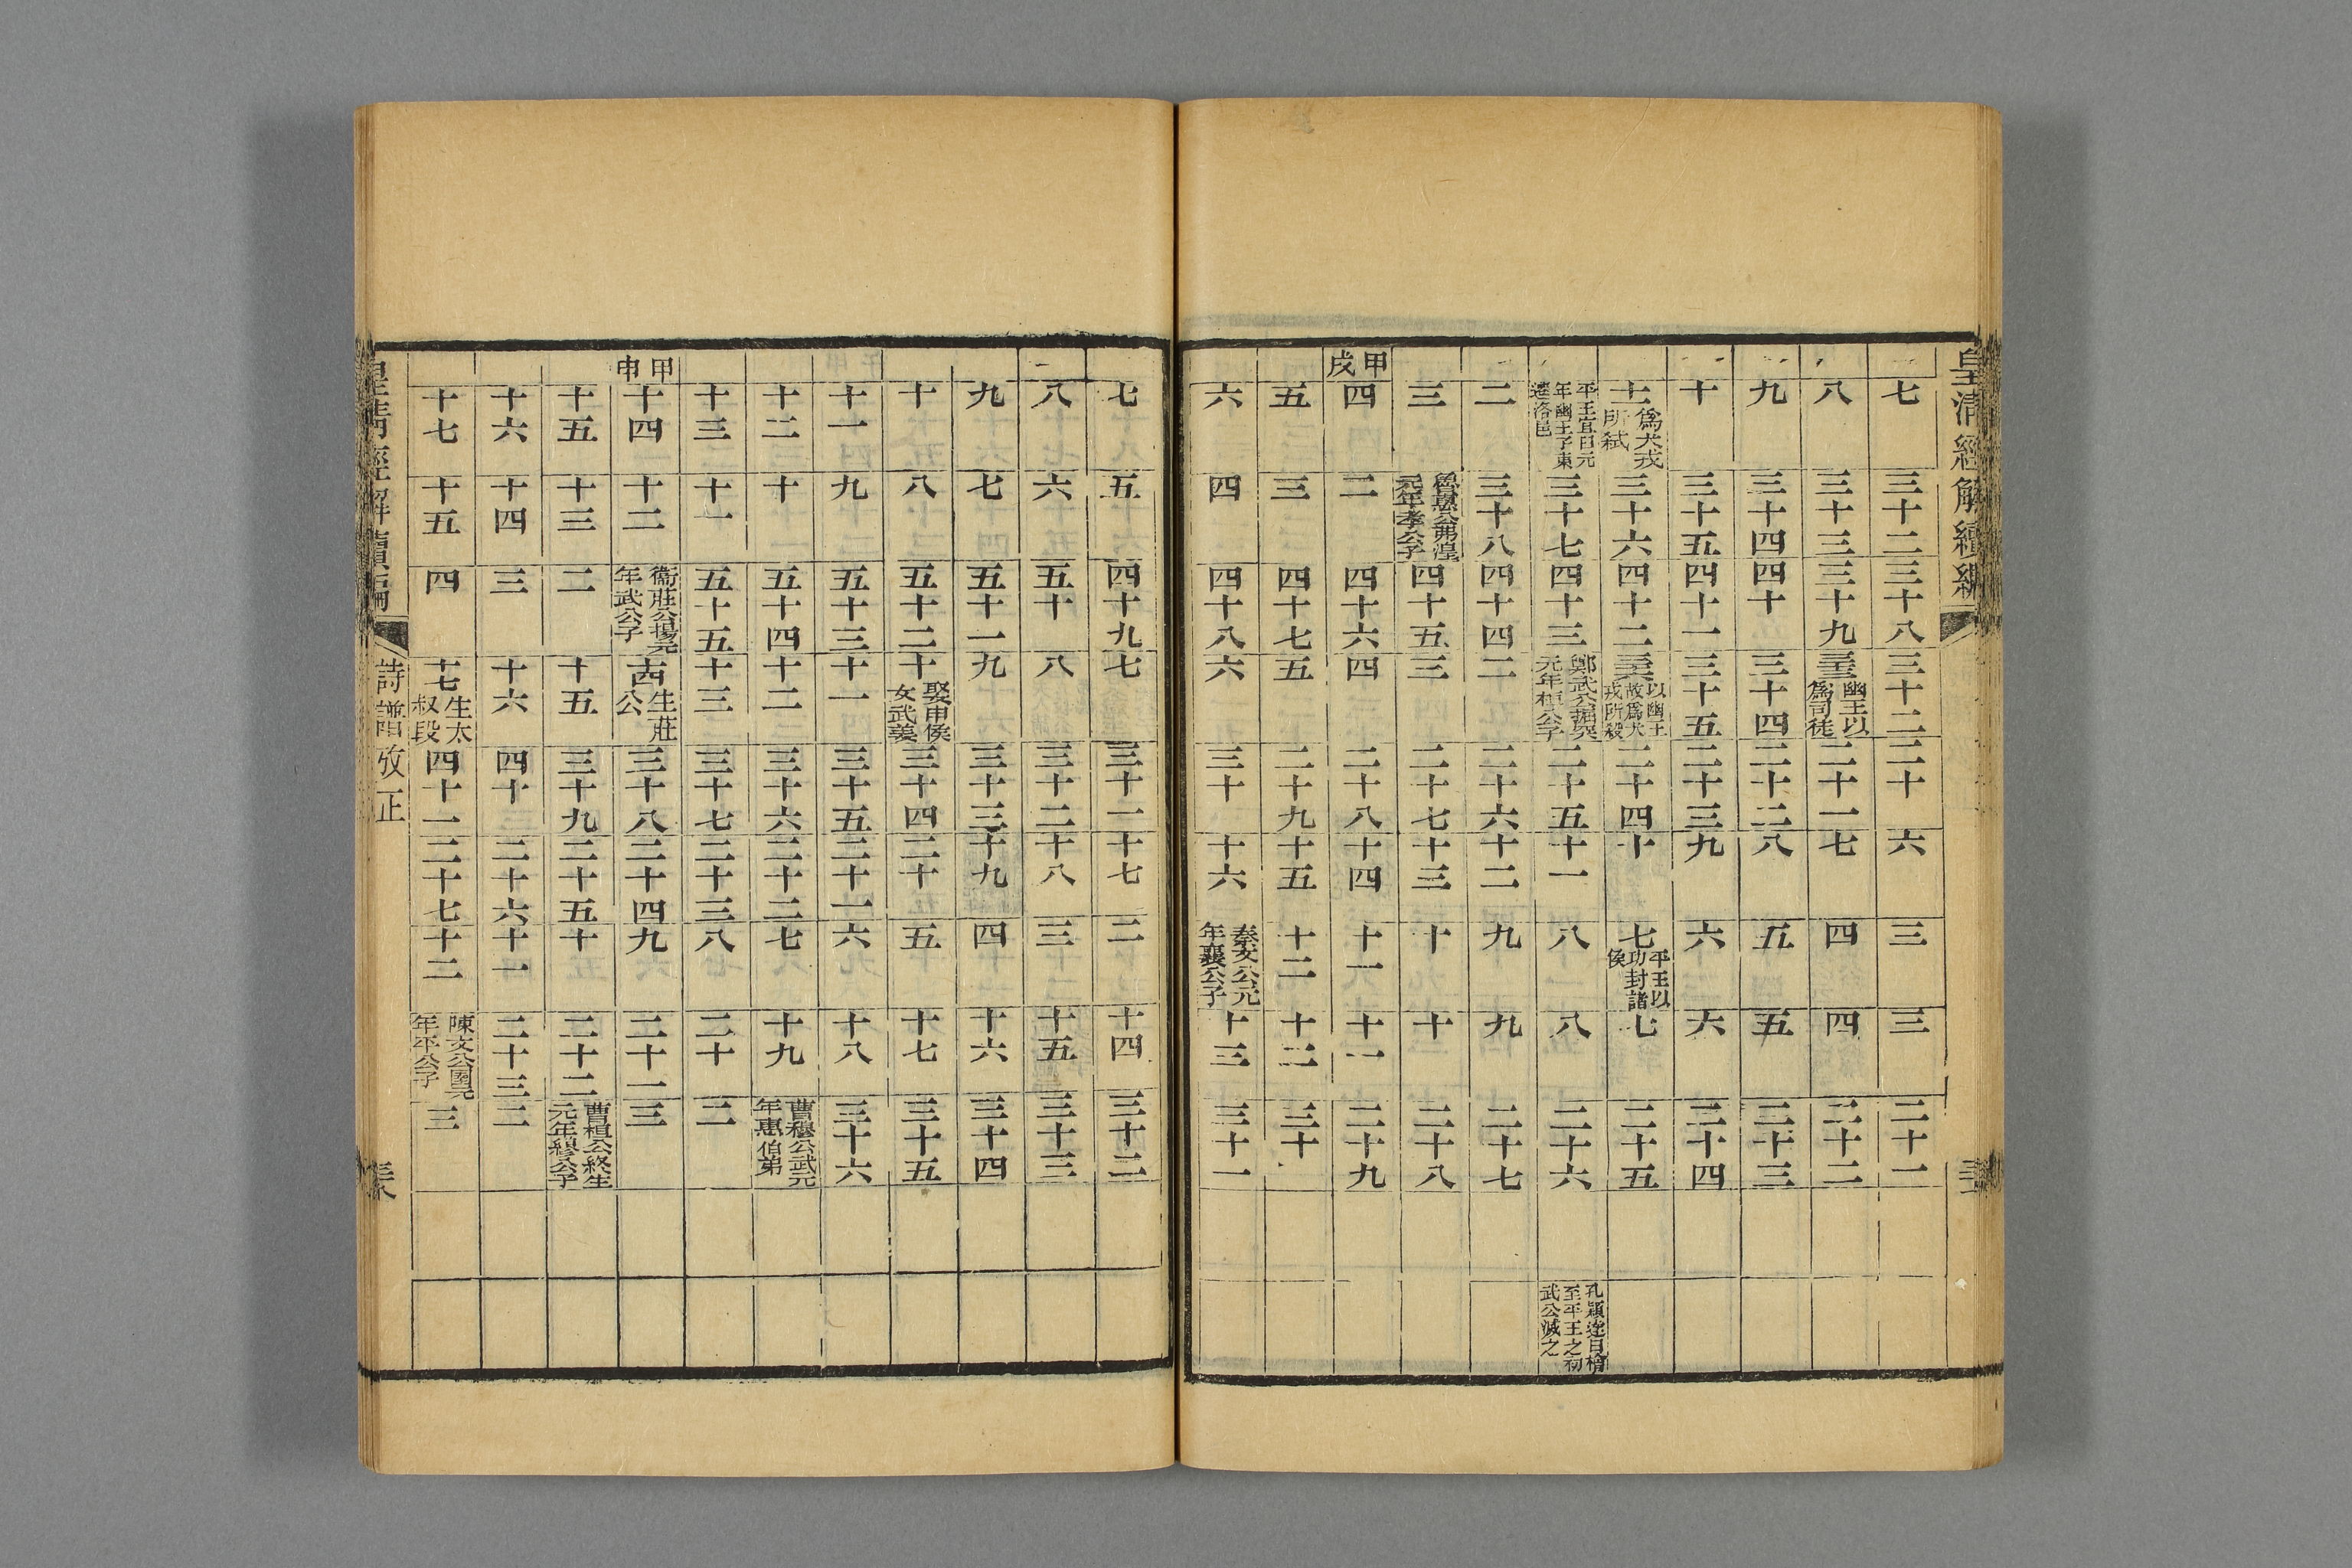 皇淸經解續編
七 三十二 三十八 三十二 二十 六 三 三 二十一
八 三十三 三十九 三十三 幽王以爲司徒 二十一 七 四 四 二十二
九 三十四 四十 三十四 二十二 八 五 五 二十三
十 三十五 四十一 三十五 二十三 九 六 六 二十四
十一 爲犬戎所弑 三十六 四十二 三十六 以幽王故爲犬戎所殺 二十四 十 七 平王以功封諸侯 七 二十五
平王宜臼元年幽王子東遷洛邑 三十七 四十三 鄭武公掘突元年桓公子 二十五 十一 八 八 二十六 孔穎達曰檜至平王之初武公滅之
二 三十八 四十四 二 二十六 十二 九 九 二十七
三 魯惠公弗湟元年孝公子 四十五 三 二十七 十三 十 十 二十八
甲戌 四 二 四十六 四 二十八 十四 十一 十一 二十九
五 三 四十七 五 二十九 十五 十二 十二 三十
六 四 四十八 六 三十 十六 秦文公元年襄公子 十三 三十一
七 五 四十九 七 三十一 十七 二 十四 三十二
八 六 五十 八 三十二 十八 三 十五 三十三
九 七 五十一 九 三十三 十九 四 十六 三十四
十 八 五十二 十 娶申侯女武姜 三十四 二十 五 十七 三十五
十一 九 五十三 十一 三十五 二十一 六 十八 三十六
十二 十 五十四 十二 三十六 二十二 七 十九 曹穆公武元年惠伯弟
十三 十一 五十五 十三 三十七 二十三 八 二十 二
甲申 十四 十二 衞莊公揚元年武公子 十四 生莊公 三十八 二十四 九 二十一 三
十五 十三 二 十五 三十九 二十五 十 二十二 曹桓公終生元年穆公子
十六 十四 三 十六 四十 二十六 十一 二十三 二
十七 十五 四 十七 生太叔段 四十一 二十七 十二 陳文公圉元年平公子 三
皇淸經解續編 詩譜攷正